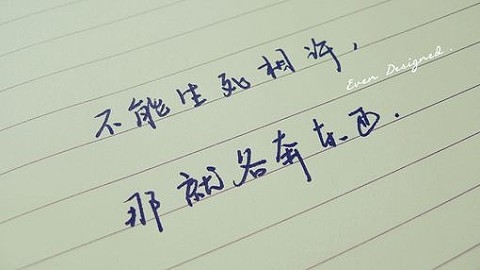 不能生死相许，
Even Designed.
那就各奔东西.